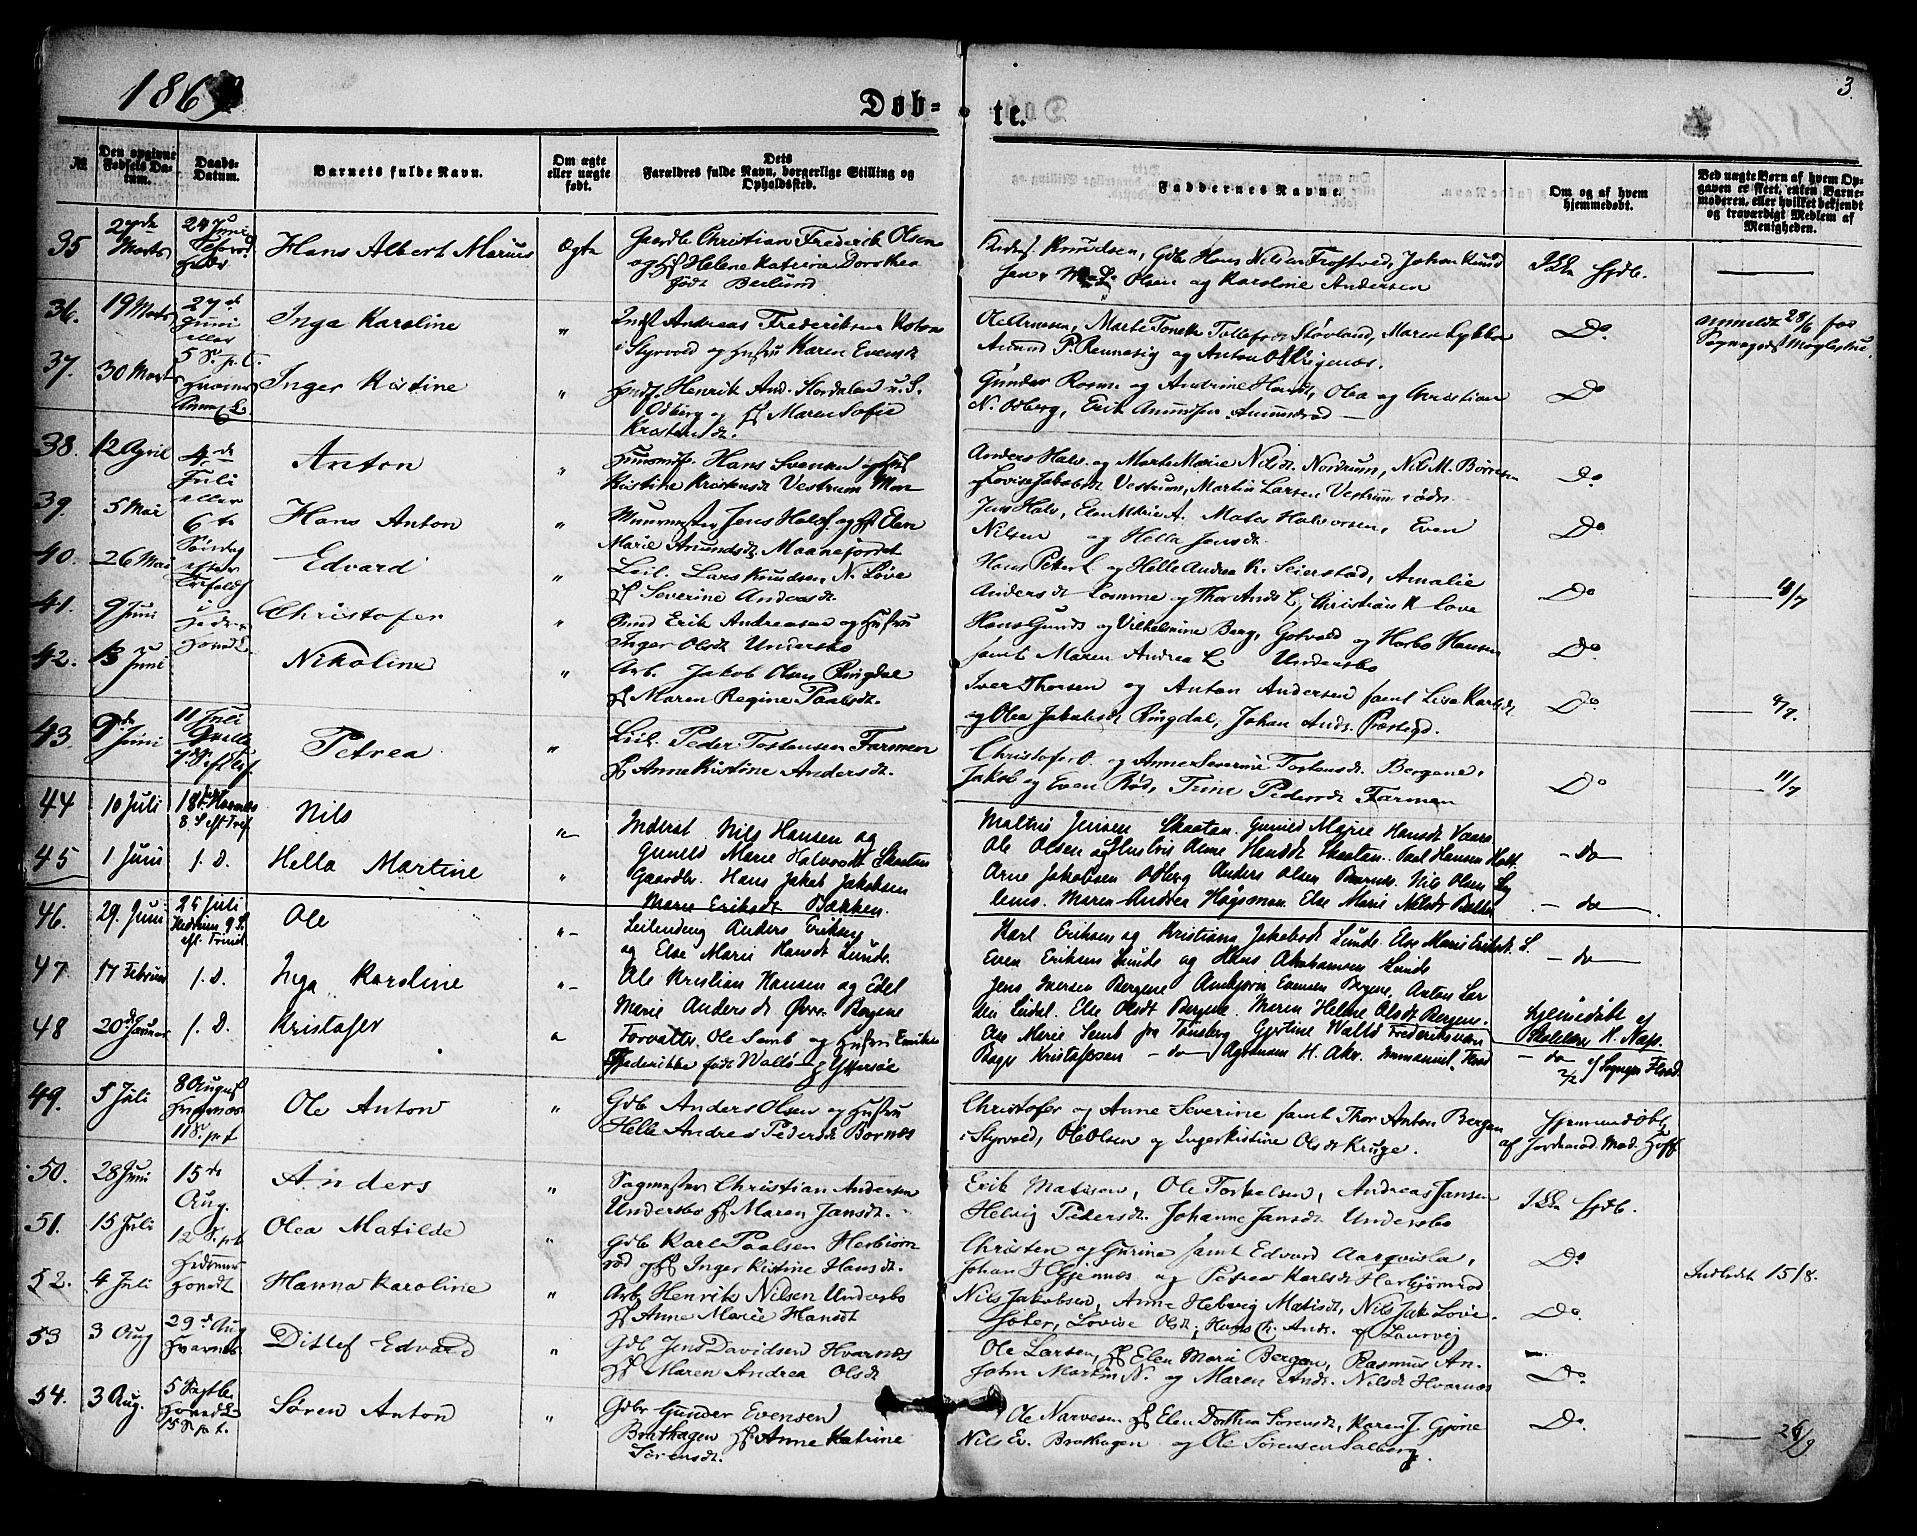 1869
Døb-
te.
3.
№
Den opgivne Fødsels Datum.
Daabs-Datum.
Barnets fulde Navn.
Om ægte eller uægte født.
Dets Forældres fulde Navn, borgerlige Stilling og Opholdssted.
Faddernes Navne.
Om og af hvem hjemmedøbt.
Ved uægte Børn af hvem Opgaven er skeet, enten Barnemoderen, eller hvilket bekjendt og troværdigt Medlem af Menigheden.
35
27de Marts
24 Juni
Hans Albert Marius
Ægte
Gaardbr Christian Frederik Olsen
og Helene Katrine Dorothea
født Berlund
Knudsen, Gdb Hans Nilsen Trostved, Johan Knud
sen, Olsen og Karoline Andersen
Ikke Hjdb.
36.
19 Marts
27de Juni
Inga Karoline
"
Andreas Frederiksen
i Styrvold og Hustru Karen Evensdt
Ole Arnesen, Marte Tonette Tollefsdt Støvland, Maren Lykke
Amund P. Rennesig og Anton
Do
anmeldt 28/6 for
37.
30 Marts
eller 5 S. p. T. Hvarnes
Inger Kristine
"
Henrik And. Stordalen u. S.
Odberg og Maren Sofie
Kristensdt.
Gunder Rosm. og Andrine Hansdt, Olea og Christian
N. Odberg, Erik Amundsen Amundrød
Do
38.
12 April
4de Juli
Anton
"
Husmd. Hans Svensen og Hust
Kristine Kristensdt Vestrum Mor
Anders Halv. og Marte Marie Nilsdt. Nordrum, Nils M. Børresen
og Lovise Jakobsdt Vestrum, Martin Larsen Vestrum ødn.
Do
39
5 Mai
eller 6te
Hans Anton
"
Muurmester Jens Halvs. og Elen
Marie Amundsdt Maanejordet
Jens Halv, Elen Marie A. Mates Halvorsen, Even
Nilsen og Hella Jensdt.
Do
40.
26 Mai
Søndag efter
Edvard
"
Leil. Lars Knudsen N. Løve
Severine Andersdt.
Hans Peter L og Helle Andrea K. Seierstad, Amalie
Andersdt Lomme og Thor Ands L, Christian K Løve
Do
4/7
41.
9 Juni
i Hedrum
Christofer
"
Erik Andreasen og Hustru
Inger Olsdt Undersbo
Hans Gunds og Vilhelmine Berg, Gotvald og Horbo Hansen
samt Maren Andrea L Undersbo
Do.
42.
13 Juni
Nikoline
"
Arb. Jakob Olsen Ringdal
Maren Regine Paalsdt.
Iver Thorsen og Anton Andersen samt Lisa Karlsdt
og Olea Jakobsdt Ringdal, Johan Ands. Præstegd.
Do
4/7.
43.
9de Juni
11 Juli
Petrea
"
Leil. Peder Tostensen Farmen
Anne Kirstine Andersdt.
Christofer O. og Anne Severine Tostensdt. Bergene,
Jakob og Even Rød, Trine Pedersdt Farmen
Do
11/7
44
10 Juli
18 Hvarnes
8 S eft Tref.
Nils
"
Inderst Nils Hansen og
Gunild Marie Halvorsdt Skaatan
Jensen Skaatan. Gunild Marie Hansdt Vaare
Ole Olsen og Hustru Anne Hansdt Skaatan. Paul Hansen Holt.
- do
45
1 Juni
f. D.
Hella Martine
"
Gaardbr. Hans Jakob Jakobsen
Maren Eriksdt Bakken.
Arne Jakobsen Odberg Anders Olsen Nils Olsen Sy
lenis. Maren Andrea Høgsmon. Else Marie Nilsdt
- do -
46.
29. Juni
25 Juli
Hedrum 9 S.
eft. Trinit.
Ole
"
Leilending Anders Eriksen
og Else Marie Hansdt Lunde.
Karl Eriksen og Kristiane Jakobsdt Lunde. Else Marie Eriksdt. L.
Even Eriksen Lunde og Hans Abrahamsen Lunde
- do -
47
17 Februar
f. D.
Inga Karoline
"
Ole Kristian Hansen og Edel
Marie Andersdt Øvre Bergene
Jens Iversen Bergene Evensen Bergene, Anton Lar
sen Lidal. Else Olsdt Bergene. Maren Helene Olsdt Bergene.
48
20de Januar
f. D.
Kristofer
"
Forvalter Ole Semb og Hustru
Frederikke født Wallø
Else Marie Semb fra Tønsberg. Gjertine Wallø Frederiksværn
Bage Kristofersen - do - Emmanuel
Hjemmedøbt af
Skolelærer H. Næss.
- do - 2/2 af Sognepr. Flood
49.
5 Juli
8 August
Hvarnes
11 S. p. t
Ole Anton
"
Gdb Anders Olsen og Hustru
Helle Andrea Pedersdt Bornæs
Christofer og Anne Severine samt Thor Anton Bergan
i Styrvold, Ole Olsen og Inger Kristine Olsdt Kruge.
Hjemmedøbt
af Jordemod. Mad. Hoff
50.
28 Juni
15de Aug.
Anders
"
Sagmester Christian Andersen
Undersbo Maren Jansdt.
Erik Matisen, Ole Torkelsen, Andreas Jansen
Helvig Pedersdt. Johanne Jansdt Undersbo
Ikke Hjdb.
51.
15 Juli
12 S. p. t
Olea Matilde
"
Gdb Karl Paalsen Herbiørn
rød og Inger Kistine Hansdt.
Christen og Gurine samt Edvard Aarqvisla,
Johan H Gjennes og Petrea Karlsdt Herbjørnrød
Do
52.
4 Juli
Hedrum
Hanna Karoline
"
Arb Henrik Nilsen Undersbo
Anne Marie Hansdt
Nils Jakobsen, Anne Helvig Matisdt, Nils Jak. Løve
Lovise Olsdt, Hans Ch. Ands. af Laurvig
Do
Indledt 15/8.
53
3 Aug
29de Aug
Hvarnes
Ditlef Edvard
"
Gdb Jens Davidsen Hvarnæs
Maren Andrea Olsdt
Ole Larsen, Elen Marie Bergan, Rasmus An.
John Martin N. og Maren Ands. Nilsdt Hvarnæs
Do.
54.
3 Aug.
5 Septbr
15 S. p. t.
Søren Anton
"
Gdbr Gunder Evensen
Brathagen Anne Katrine
Sørensdt.
Ole Narvesen Elen Dorthea Sørensdt, Karen J. Gjøne
Nils Ev. Brathagen og Ole Sørensen Solberg.
Do
26/9